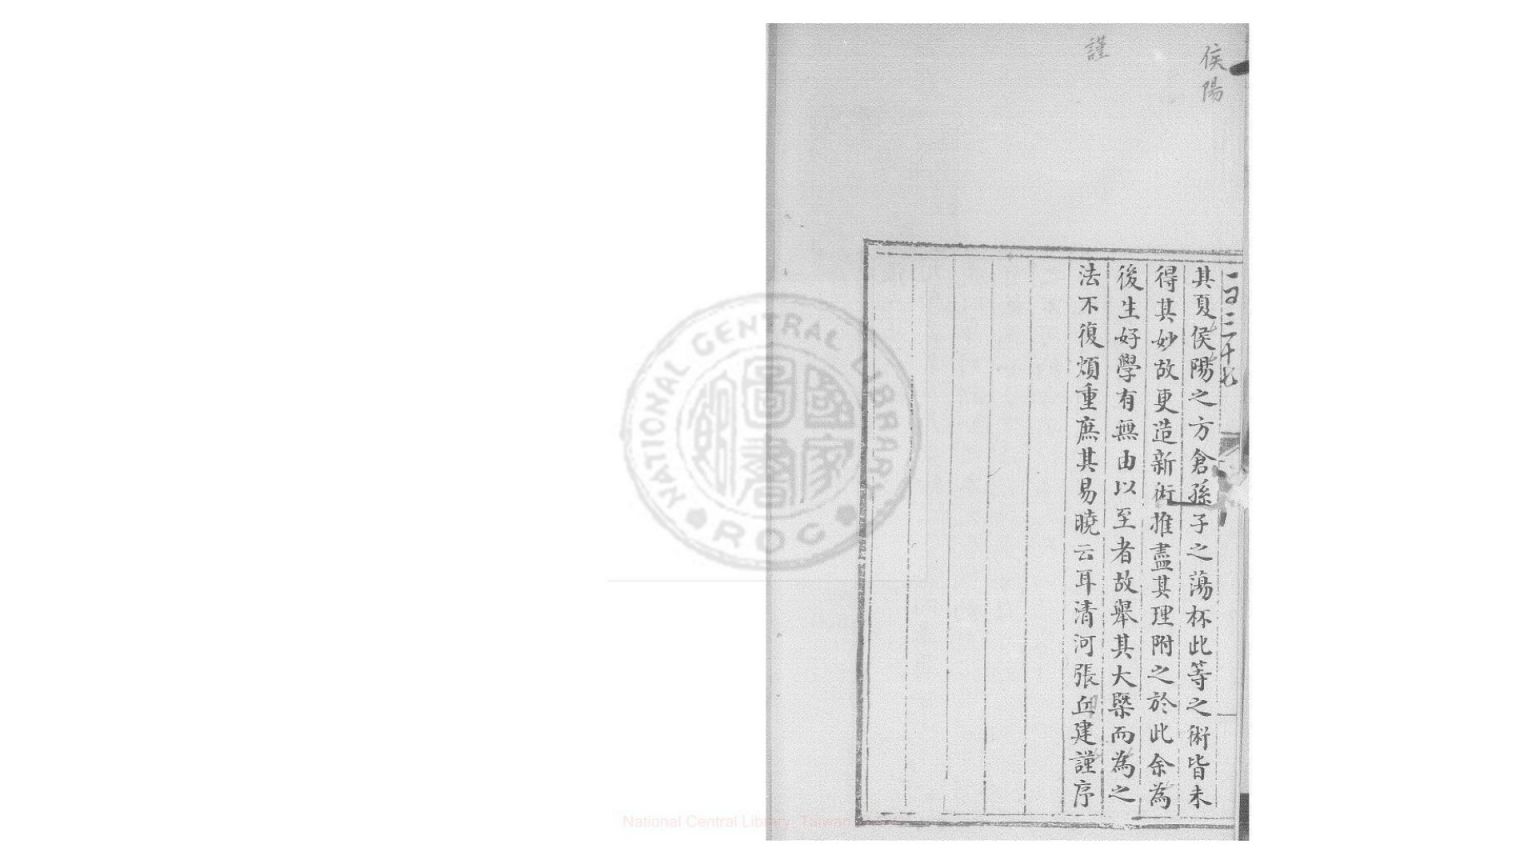 侯陽
謹
一百三十七
其夏侯陽之方倉孫子之蕩杯此等之術皆未
得其妙故更造新術推盡其理附之於此余為
後生好學有無由以至者故舉其大槩而為之
法不復煩重庶其易曉云耳清河張丘建謹序
NATIONAL CENTRAL LIBRARY
ROC
國家圖書館
National Central Library, Taiwan